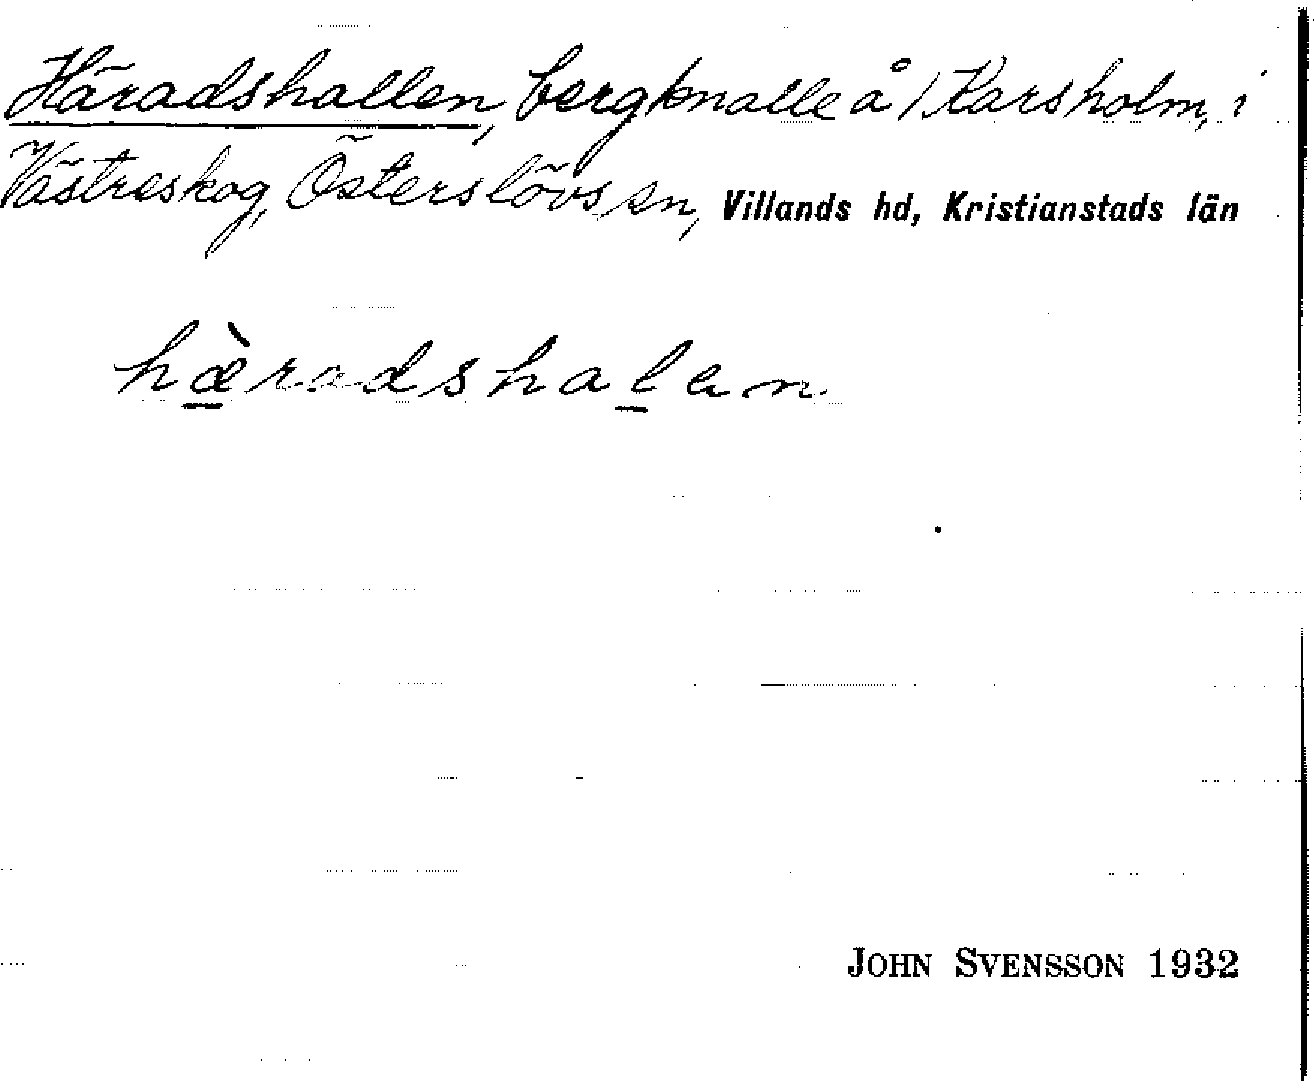 Häradshallen, bergknalle å /Karsholm, i
Västreskog, Österslövs sn, Villands hd, Kristianstads län
hæ̀radshalen
JOHN SVENSSON 1932